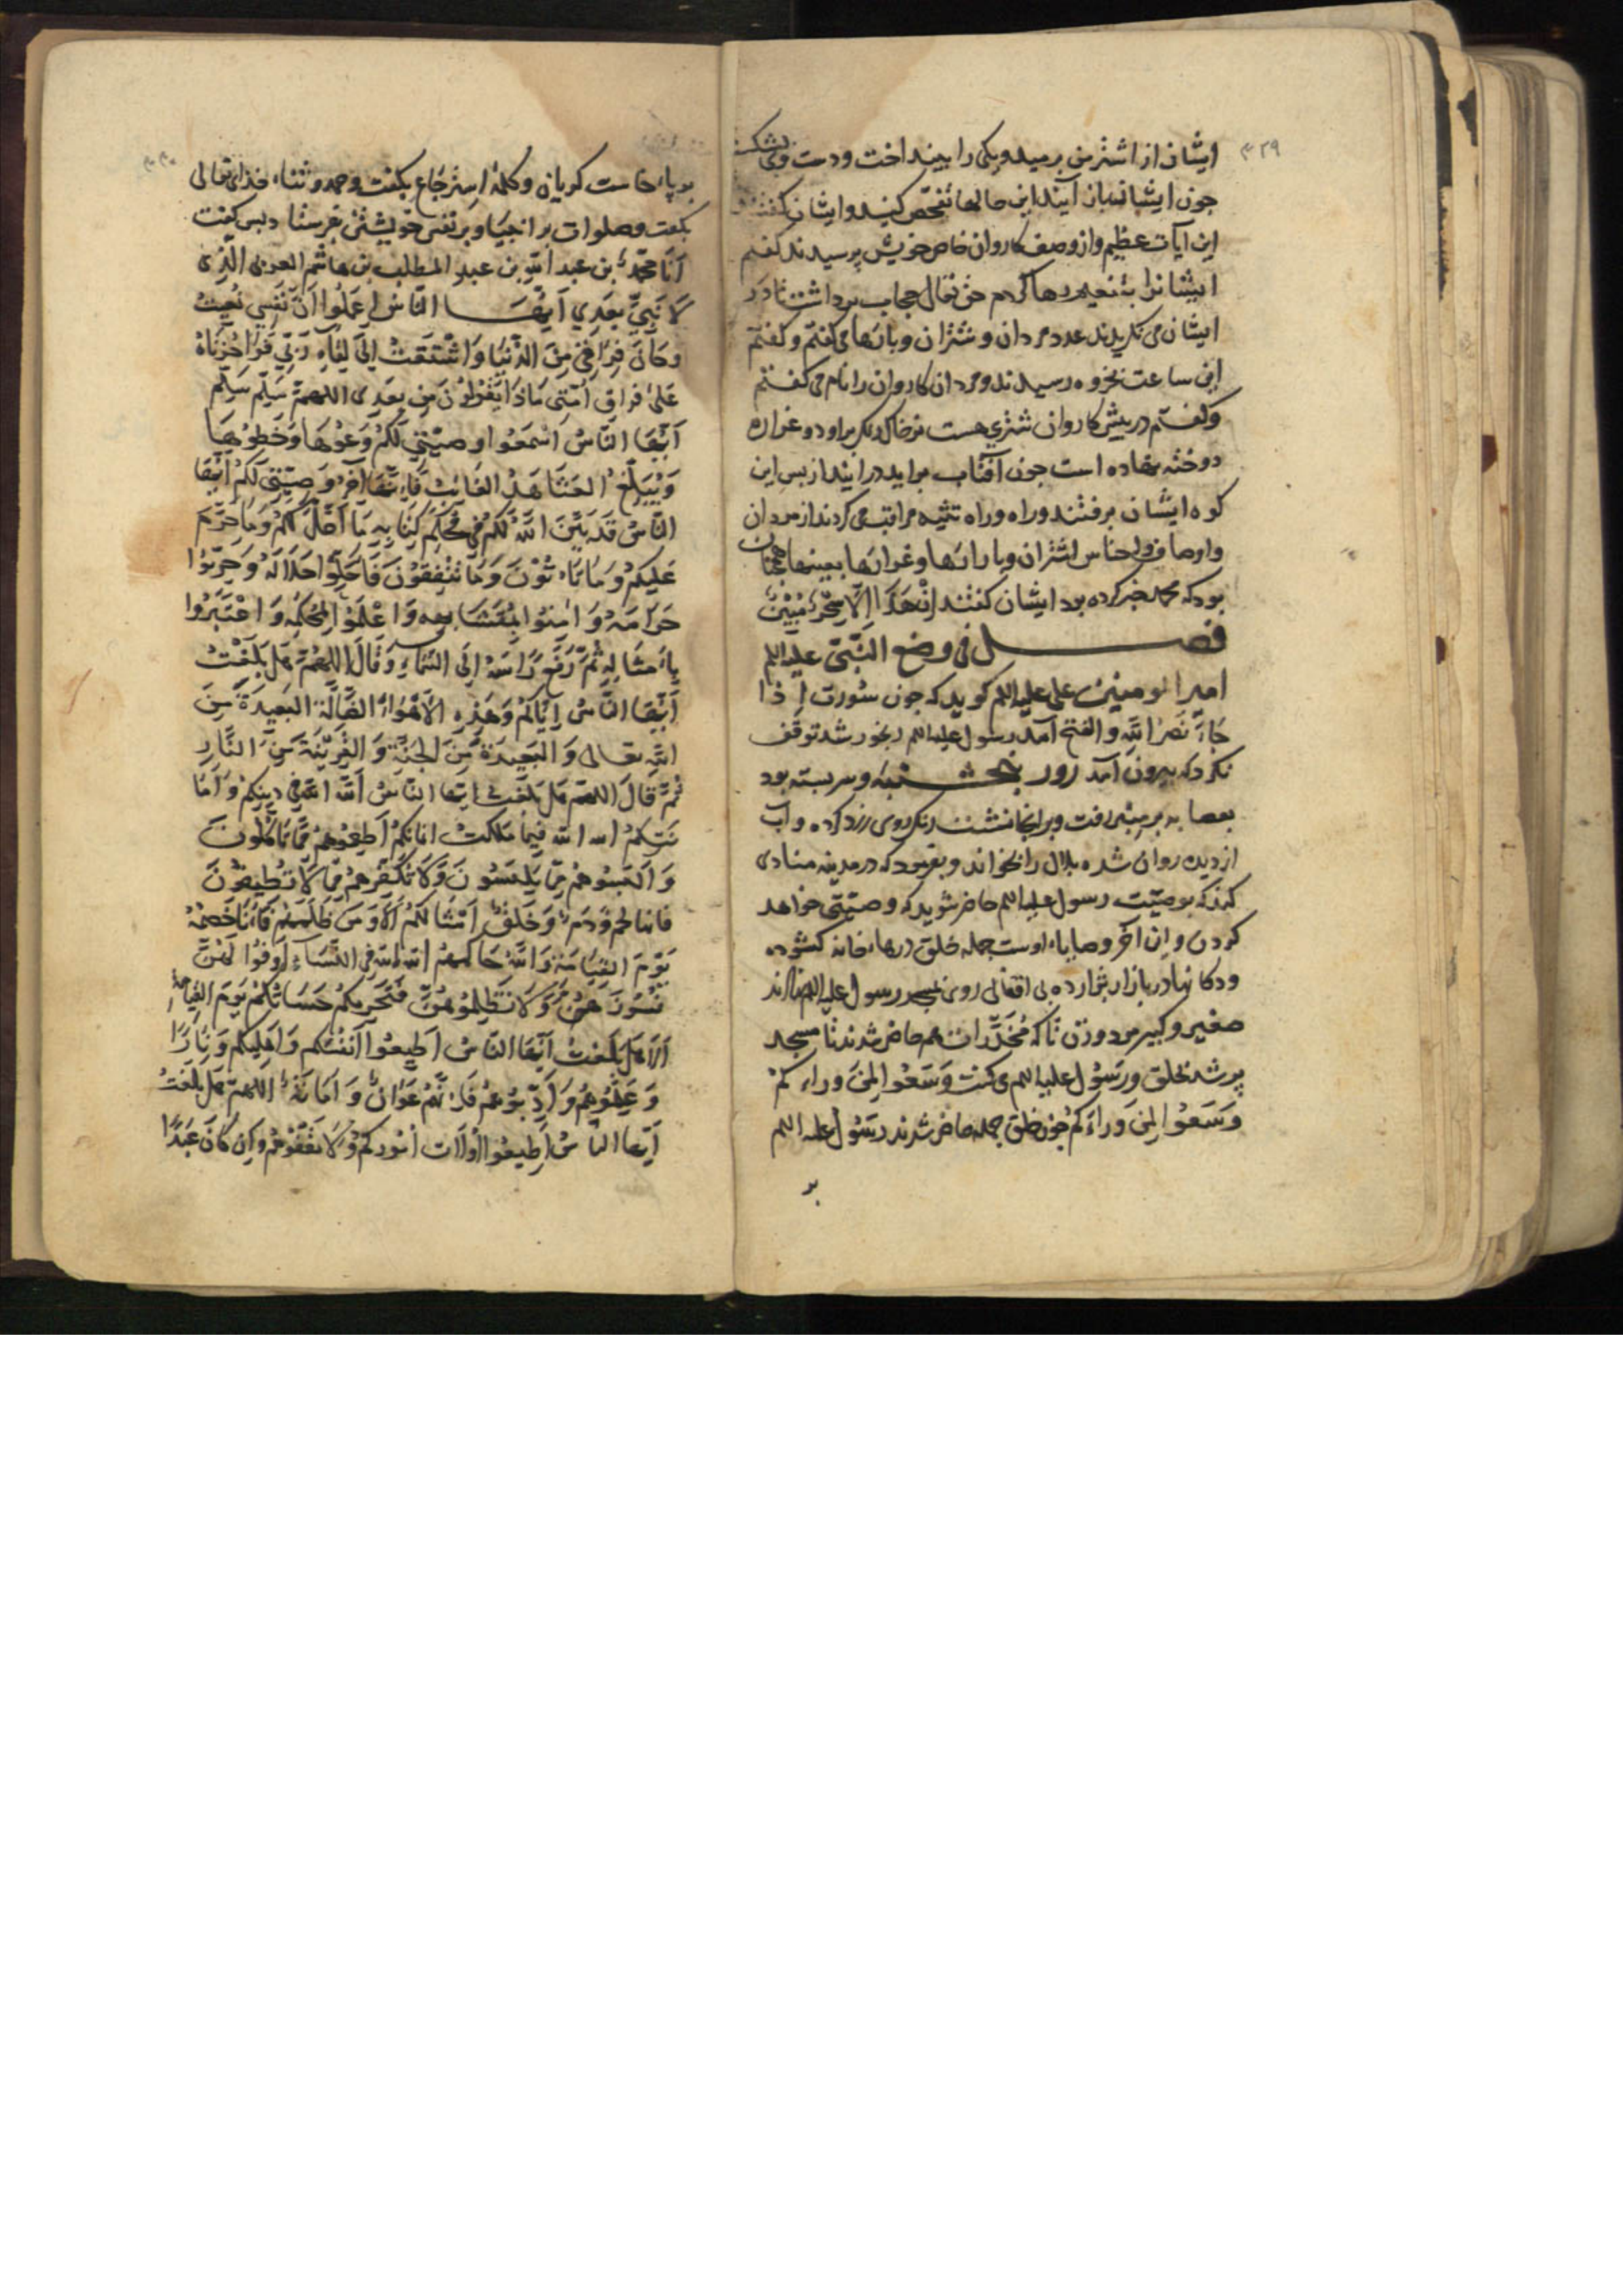 ٣٢٩
ایشان از اشتر من برمید و یکی را بینداخت و دست وی بشکست
جون ایشان باز آیند این حالها تفحص کنید و ایشان گفتند
این آیات عظیم و از وصف کاروان خاص خویش پرسیدند گفتم
ایشانرا بتنعیم رها کردم حق تعالی حجاب برداشت تا در
ایشان می نگریدند عدد مردان و شتران و بارها می گفتم و گفتم
این ساعت بخزوه رسیدند و مردان کاروان را نام می گفتم
و گفتم در پیش کاروان شتری هست نر خاک رنگ بر او دو غراره
دوخته نهاده است جون آفتاب براید درآیند از بس این
کوه ایشان برفتند و راه و راه ثنیه مراقبه می کردند از مردان
و اوصاف و اجناس اشتران و بارانها و غرارها بعینها همچنان
بود که محمد خبر کرده بود ایشان گفتند ان هذا الا سحر مبین
فصل فی وضع النبی علیه السلم
امیر المومنین علی علیه السلم کوید که جون سورت اذا
جاء نصر الله و الفتح آمد رسول علیه السلم رنجور شد توقف
نکرد که بیرون آمد روز بنجشنبه و سر بسته بود
بعصابه بر منبر رفت و بر آنجا نشست رنک روی زرد کرده و آب
از دیده روان شده بلال را بخواند و بفرمود که در مدینه منادی
کند که بوصیّت رسول علیه السلم حاضر شوید که وصیّتی خواهد
کردن و این آخر وصایاء اوست جمله خلق درهاء خانه کشوده
و دکانها در بازار بگذارده بی اقفالی روی بمسجد رسول علیه السلم نهادند
صغیر و کبیر مرد و زن تا که مُخَدَّرات هم حاضر شدند تا مسجد
پر شد بخلق و رسول علیه السلم می کفت وَسِّعُوا لِمَن وراءکم
وَسِّعُوا لِمَن وَراءَکم جون خلق جمله حاضر شدند رسول علیه السلم
بر
٣٣٠
بر پاء خاست کریان و کلمهٔ استرجاع بکفت و حمد و ثناء خذای تعالی
بکفت و صلوات بر انبیا و بر نفس خویشتن بفرستاد و بس کفت
اَنَا محمّد بن عبد الله بن عبد المطلب بن هاشم العربی الّذی
لَا نَبِیَّ بَعدِی اَیُّهَا النّاس اِعلَمُوا اَنَّ نَفسِی نُعِیَت
وحَانَ فِراقی مِنَ الدُّنیَا وَاشتَقتُ اِلیٰ لِقَاءِ رَبّی فَوَاحُزنَاهُ
عَلیٰ فراق اُمّتی مَاذَا یَقُولُونَ مِن بَعدِی اللهمّ سَلِّم سَلِّم
اَیُّهَا النّاسُ اسمَعُوا وصیّتی لَکُم وَعُوهَا وَحفظُوهَا
وَلیُبَلِّغ الشَّاهِدُ الغائِبَ فَاِنّهَا آخِرُ وَصِیَّتِی لَکُم اَیُّهَا
النّاسُ قَد بَیَّنَ اللهُ لَکُم فی مُحکَمِ کِتابِهِ مَا اَحَلَّ لَکُم وَمَا حَرَّمَ
عَلَیکُم وَمَا تَاتُونَ وَمَا تَتَّقُونَ فَاَحِلُّوا حَلَالَهُ وَحَرِّمُوا
حَرَامَهُ وَآمِنُوا بِمُتَشَابِهِهِ وَاعمَلُوا بِمُحکَمِهِ وَاعتَبِرُوا
بِاَمثَالِهِ ثُمَّ رَفَعَ رَاسَهُ اِلَی السَّمَاءِ وَقَالَ اَللّهُمَّ هَل بَلَّغتُ
اَیُّهَا النَّاسُ اِیَّاکُم وَهَذِهِ الاَهوَاءَ الضَّالَّةَ البَعِیدَةَ مِنَ
الله تعالی وَ البَعِیدَةَ مِنَ الجَنَّةِ وَ القَرِیبَةَ مِنَ النَّارِ
ثُمَّ قَالَ اللهم هَل بَلَّغتُ ایها النّاسُ اللهَ اللهَ فی دِینِکُم وَاَمَا
نَتِکُم الله الله فِیمَا مَلَکَت ایمانکُم اَطعِمُوهُم مِمَّا تَاکُلُونَ
وَ اَلبِسُوهُم مِمَّا تَلبَسُونَ وَلَا تُکَلِّفُوهُم مَا لَا تُطِیقُونَ
فانها لحم وَدَم وَخَلقٌ اَمثَالُکُم اَلَا وَمَن ظَلَمَهُم فَاَنَا خَصمُهُ
یَومَ القِیَامَةِ وَاللهُ حَاکِمُهُم الله الله فی النِّسَاءِ اَوفُوا لَهُنَّ
مُهُورَهُنَّ وَلَا تَظلِمُوهُنَّ فَتَحرِمکُم حَسَناتکُم یَومَ القِیَامَةِ
اَلَا هَل بَلَّغتُ اَیُّهَا النَّاسُ اَطِیعُوا اَنفُسَکُم وَاَهلِیکُم وَنَارًا
وَ عَلِّمُوهُم وَ اَدِّبُوهُم فَاِنَّهُم عَوَانٌ وَ اَمَانَةٌ اَللهمّ هَل بَلَّغتُ
اَیّها الناسُ اَطِیعُوا وُلَاتَ اُمُورِکُم وَلَا تعقّوهُم وَاِن کَانَ عَبدًا